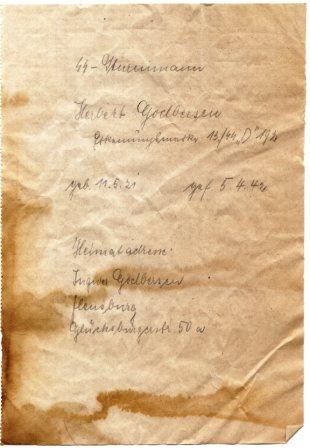 SS-Sturmmann
Herbert Godbersen
Erkennungsmarke 13/SS „D" 192
geb. 11.5.21 gef. 5.4.42
Heimatadresse:
Ingwer Godbersen
Flensburg
Glücksburgerstr. 50 a